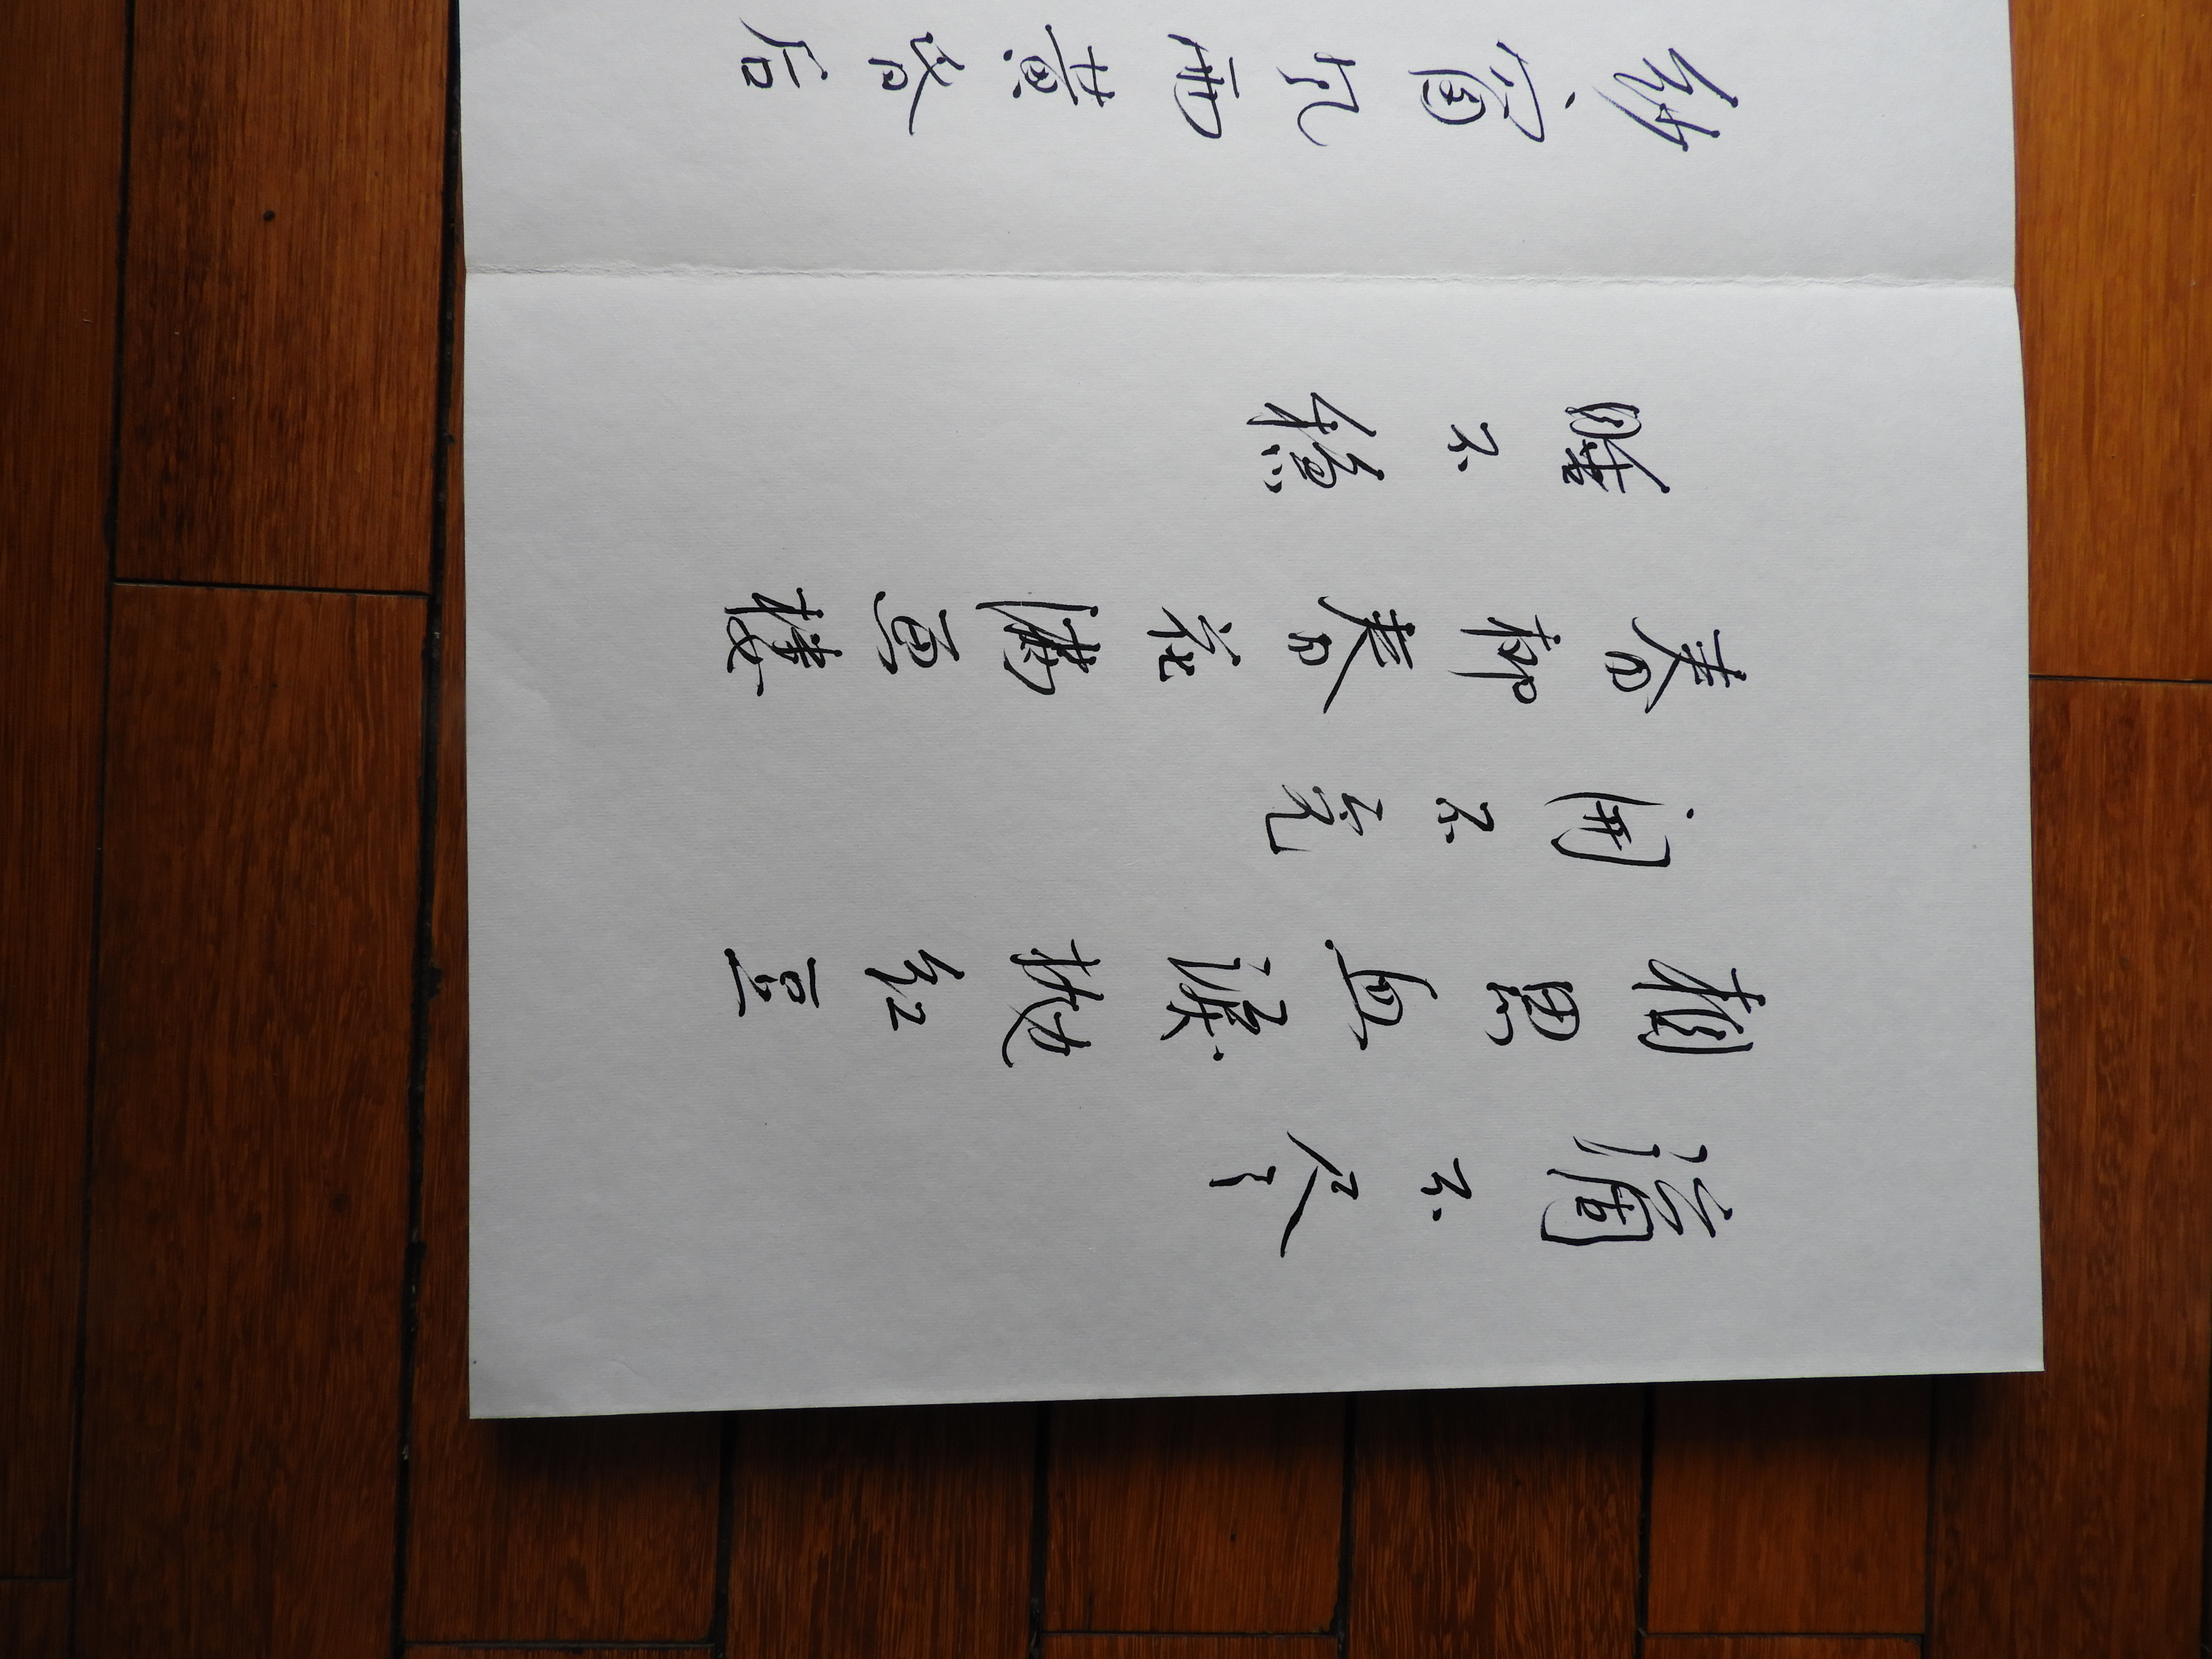 滴不尽
相思血淚抛红豆
開不完
春柳春花满画樓
睡不稳
纱窗风雨黄昏后